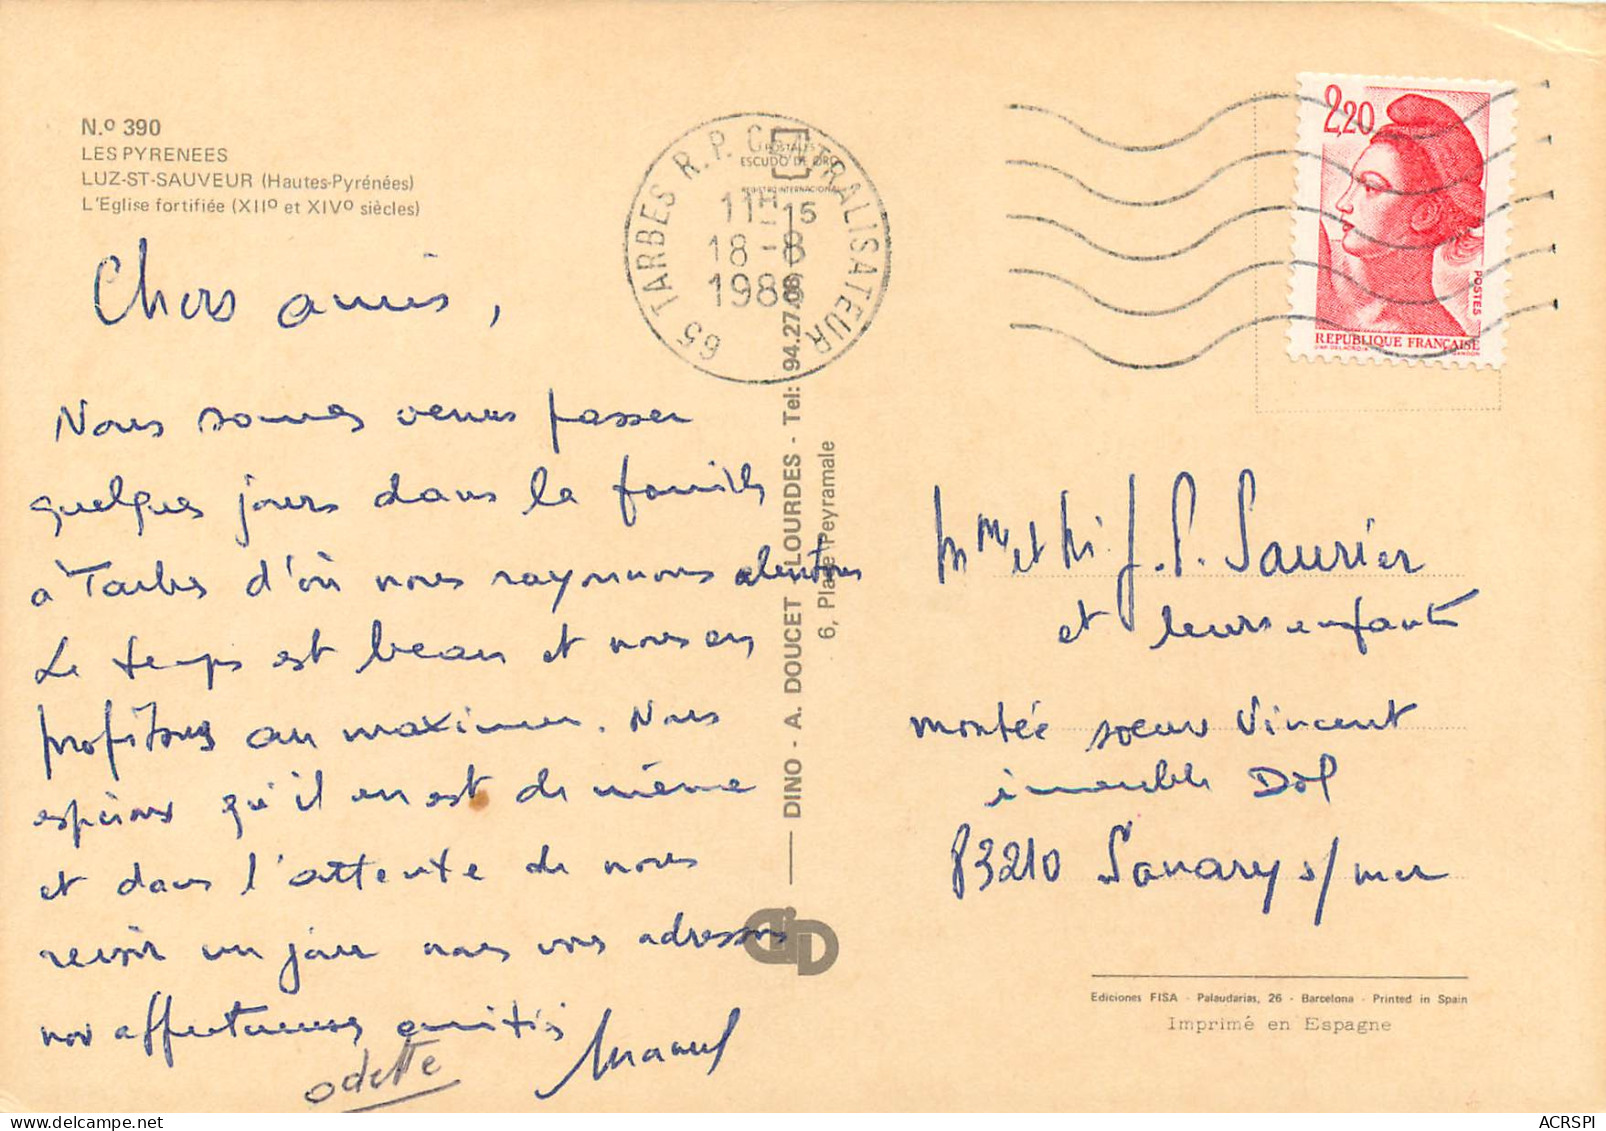 N.º 390
LES PYRENEES
LUZ-ST-SAUVEUR (Hautes-Pyrénées)
L'Eglise fortifiée (XIIº et XIVº siècles)
Chers amis,
Nous sommes venus passer
quelques jours dans la famille
à Tarbes d'où nous rayonnons alentours
Le temps est beau et nous en
profitons au maximum. Nous
espérons qu'il en est de même
et dans l'attente de vous
revoir un jour nous vous adressons
nos affectueuses amitiés
odette
65 TARBES R.P. CENTRALISATEUR
11H15
18-8
POSTALES
ESCUDO DE ORO
REGISTRO INTERNACIONAL
DINO - A. DOUCET LOURDES - Tel: 94.27.08
6, Place Peyramale
D
2,20
POSTES
REPUBLIQUE FRANÇAISE
D'AP. DELACROIX GANDON
Mme et Mr J.P. Saurier
et leurs enfants
montée soeur Vincent
immeuble Dol
83210 Sanary s/mer
Ediciones FISA - Palaudarias, 26 - Barcelona - Printed in Spain
Imprimé en Espagne
ACRSPI